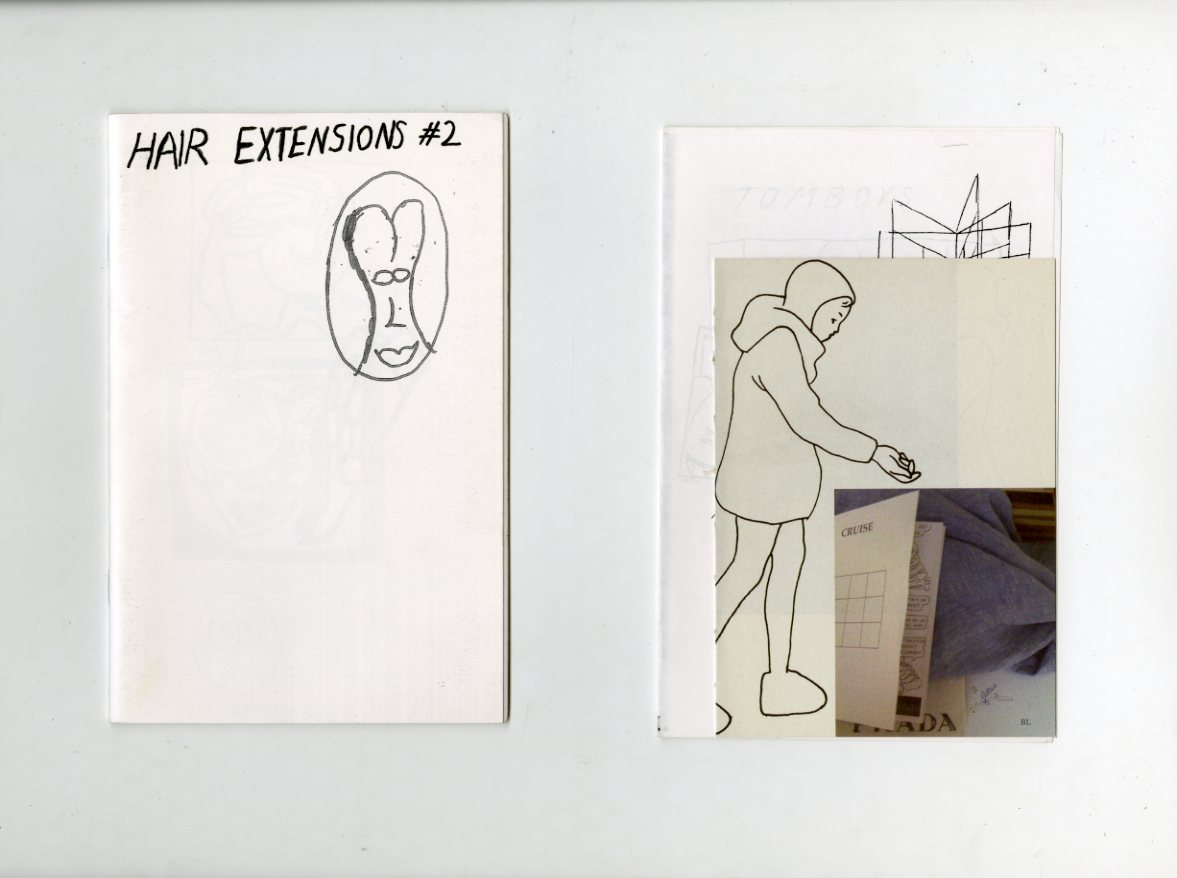 HAIR EXTENSIONS #2
TOMBOYS
CRUISE
PRADA
BL